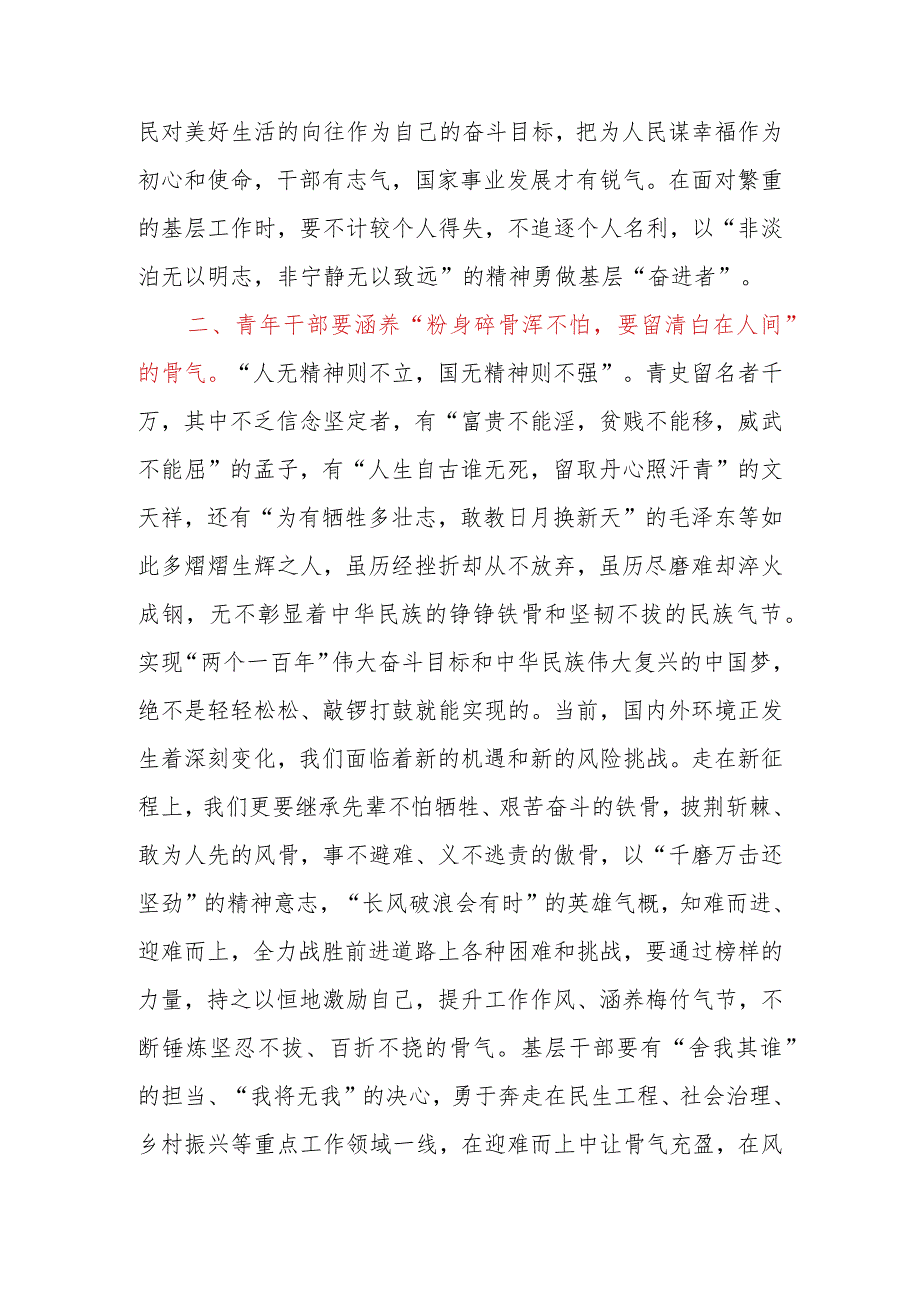 民对美好生活的向往作为自己的奋斗目标，把为人民谋幸福作为
初心和使命，干部有志气，国家事业发展才有锐气。在面对繁重
的基层工作时，要不计较个人得失，不追逐个人名利，以“非淡
泊无以明志，非宁静无以致远”的精神勇做基层“奋进者”。
二、青年干部要涵养“粉身碎骨浑不怕，要留清白在人间”
的骨气。“人无精神则不立，国无精神则不强”。青史留名者千
万，其中不乏信念坚定者，有“富贵不能淫，贫贱不能移，威武
不能屈”的孟子，有“人生自古谁无死，留取丹心照汗青”的文
天祥，还有“为有牺牲多壮志，敢教日月换新天”的毛泽东等如
此多熠熠生辉之人，虽历经挫折却从不放弃，虽历尽磨难却淬火
成钢，无不彰显着中华民族的铮铮铁骨和坚韧不拔的民族气节。
实现“两个一百年”伟大奋斗目标和中华民族伟大复兴的中国梦，
绝不是轻轻松松、敲锣打鼓就能实现的。当前，国内外环境正发
生着深刻变化，我们面临着新的机遇和新的风险挑战。走在新征
程上，我们更要继承先辈不怕牺牲、艰苦奋斗的铁骨，披荆斩棘、
敢为人先的风骨，事不避难、义不逃责的傲骨，以“千磨万击还
坚劲”的精神意志，“长风破浪会有时”的英雄气概，知难而进、
迎难而上，全力战胜前进道路上各种困难和挑战，要通过榜样的
力量，持之以恒地激励自己，提升工作作风、涵养梅竹气节，不
断锤炼坚忍不拔、百折不挠的骨气。基层干部要有“舍我其谁”
的担当、“我将无我”的决心，勇于奔走在民生工程、社会治理、
乡村振兴等重点工作领域一线，在迎难而上中让骨气充盈，在风